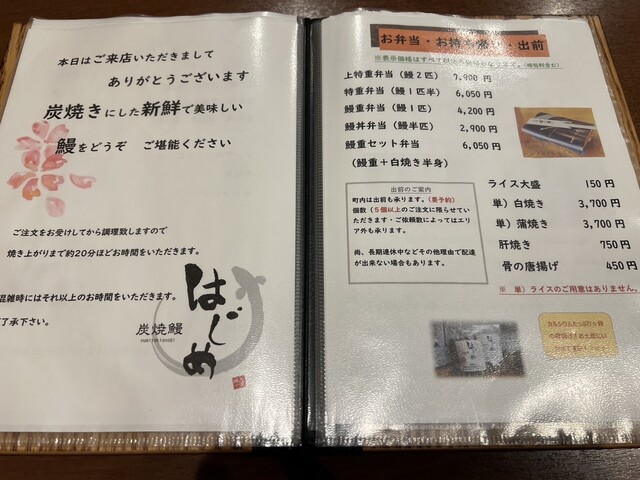 本日はご来店いただきまして
ありがとうございます
炭焼きにした新鮮で美味しい
鰻をどうぞ ご堪能ください
ご注文をお受けしてから調理致しますので
焼き上がりまで約20分ほどお時間をいただきます。
混雑時にはそれ以上のお時間をいただきます。
了承下さい。
はじめ
炭焼鰻
お弁当・お持ち帰り・出前
※表示価格はすべて
上特重弁当（鰻２匹） 7,900 円
特重弁当（鰻１匹半） 6,050 円
鰻重弁当（鰻１匹） 4,200 円
鰻丼弁当（鰻半匹） 2,900 円
鰻重セット弁当 6,050 円
（鰻重＋白焼き半身）
出前のご案内
町内は出前も承ります。（要予約）
個数（５個以上のご注文に限らせてい
ただきます・ご依頼数によってはエリ
ア外も承ります。
尚、長期連休中などその他理由で配達
が出来ない場合もあります。
ライス大盛 150 円
単）白焼き 3,700 円
単）蒲焼き 3,700 円
肝焼き 750 円
骨の唐揚げ 450 円
※ 単）ライスのご用意はありません。
カルシウムたっぷり♪鰻